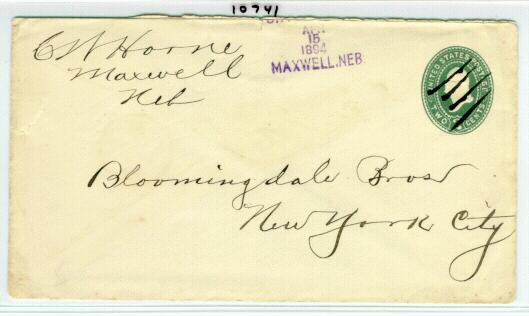 10741
C W Horne
Maxwell
Neb
15
1894
MAXWELL, NEB.
UNITED STATES POSTAGE
TWO CENTS
Bloomingdale Bros
New York City